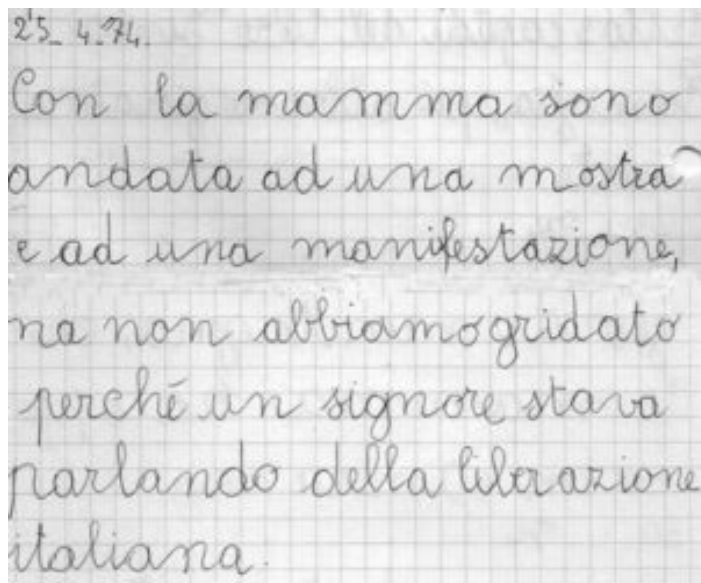 25_ 4_74.
Con la mamma sono
andata ad una mostra
e ad una manifestazione,
ma non abbiamo gridato
perché un signore stava
parlando della liberazione
italiana.